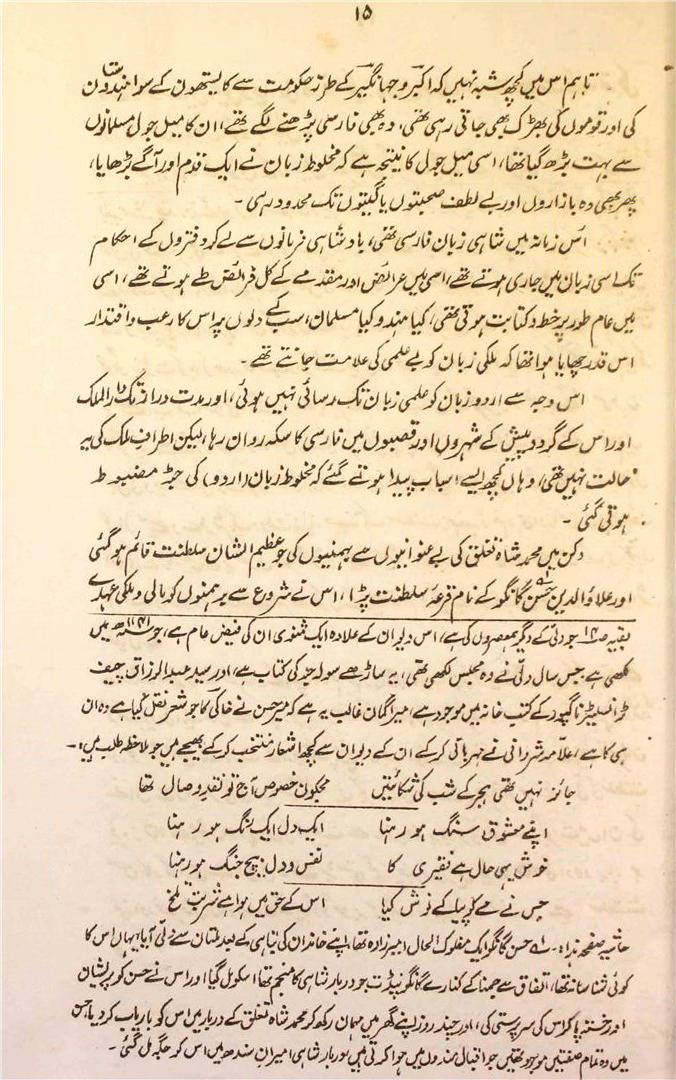 ۱۵
تاہم اس میں کچھ شبہ نہیں کہ اکبر و جہانگیر کے طرز حکومت سے کایستھون کے سوا ہندوستان
کی اور قوموں کی بھڑک بھی جاتی رہی تھی، وہ بھی فارسی پڑھنے لگے تھے، ان کا میل جول مسلمانوں
سے بہت بڑھ گیا تھا، اسی میل جول کا نتیجہ ہے کہ مخلوط زبان نے ایک قدم اور آگے بڑھایا،
پھر بھی وہ بازاروں اور بے لطف صحبتوں یا گیتوں تک محدود رہی ۔
اس زمانہ میں شاہی زبان فارسی تھی، بادشاہی فرمانوں سے لے کر دفتروں کے احکام
تک اسی زبان میں جاری ہوتے تھے، اسی میں عرائض اور مقدمے کے کل فرائض طے ہوتے تھے، اسی
میں عام طور پر خط و کتابت ہوتی تھی، کیا ہندو کیا مسلمان، سب کے دلوں پر اس کا رعب و اقتدار
اس قدر چھایا ہوا تھا کہ ملکی زبان کو بے علمی کی علامت جانتے تھے ۔
اس وجہ سے اردو زبان کو علمی زبان تک رسائی نہیں ہوئی، اور مدت دراز تک دارالملک
اور اس کے گرد و پیش کے شہروں اور قصبوں میں فارسی کا سکہ رواں رہا، لیکن اطراف ملک کی یہ
حالت نہیں تھی، وہاں کچھ ایسے اسباب پیدا ہوتے گئے کہ مخلوط زبان (اردو) کی جڑ مضبوط
ہوتی گئی ۔
دکن میں محمد شاہ تغلق کی بے عنوانیوں سے بہمنیوں کی جو عظیم الشان سلطنت قائم ہو گئی
اور علاؤالدین حسن گانگو کے نام قرعۂ سلطنت پڑا، اس نے شروع سے برہمنوں کو مالی و ملکی عہدے
بقیہ صہ ۱۴ جو ولی کے دیگر ہمعصروں کی ہے، اس دیوان کے علاوہ ایک مثنوی ان کی فیض عام ہے، جو ۱۱۴۱ھ میں
لکھی ہے جس سال ولی نے دہ مجلس لکھی تھی، یہ ساڑھے سولہ جز کی کتاب ہے، اور سید عبدالرزاق چیف
ٹرانسلیٹر ناگپور کے کتب خانہ میں موجود ہے، میرا گمان غالب یہ ہے کہ میر حسن نے خاکی کا جو شعر نقل کیا ہے وہ ان
ہی کا ہے، علامہ شروانی نے مہربانی کر کے ان کے دیوان سے کچھ اشعار منتخب کر کے بھیجے ہیں جو ملاحظہ طلب ہیں :۔
جائز نہیں تھی ہجر کے شب کی شکائتیں مجکوں خصوص آج تو نقد وصال تھا
اپنے معشوق سنگ ہو رہنا ایک دل ایک رنگ ہو رہنا
خوش یہی حال ہے فقیری کا نفس و دل بیچ جنگ ہو رہنا
جس نے مے کو پیا کے نوش کیا اس کے حق میں ہوا ہے شربت تلخ
حاشیہ صفحہ ہذا :۔ ۱؎ حسن گانگو ایک مفلوک الحال امیر زادہ تھا، اپنے خاندان کی تباہی کے بعد ملتان سے دلی آیا، یہاں اس کا
کوئی شناسا نہ تھا، اتفاق سے جمنا کے کنارے گانگو پنڈت جو دربار شاہی کا منجم تھا، اسکو مل گیا اور اس نے حسن کو پریشان
اور خستہ پا کر اس کی سر پرستی کی، اور چند روز اپنے گھر میں مہمان رکھ کر محمد شاہ تغلق کے دربار میں اس کو باریاب کر دیا، حسن
میں وہ تمام صفتیں موجود تھیں جو اقبال مندوں میں ہوا کرتی ہیں، دربار شاہی امیران سندھ میں اس کو جگہ مل گئی ۔